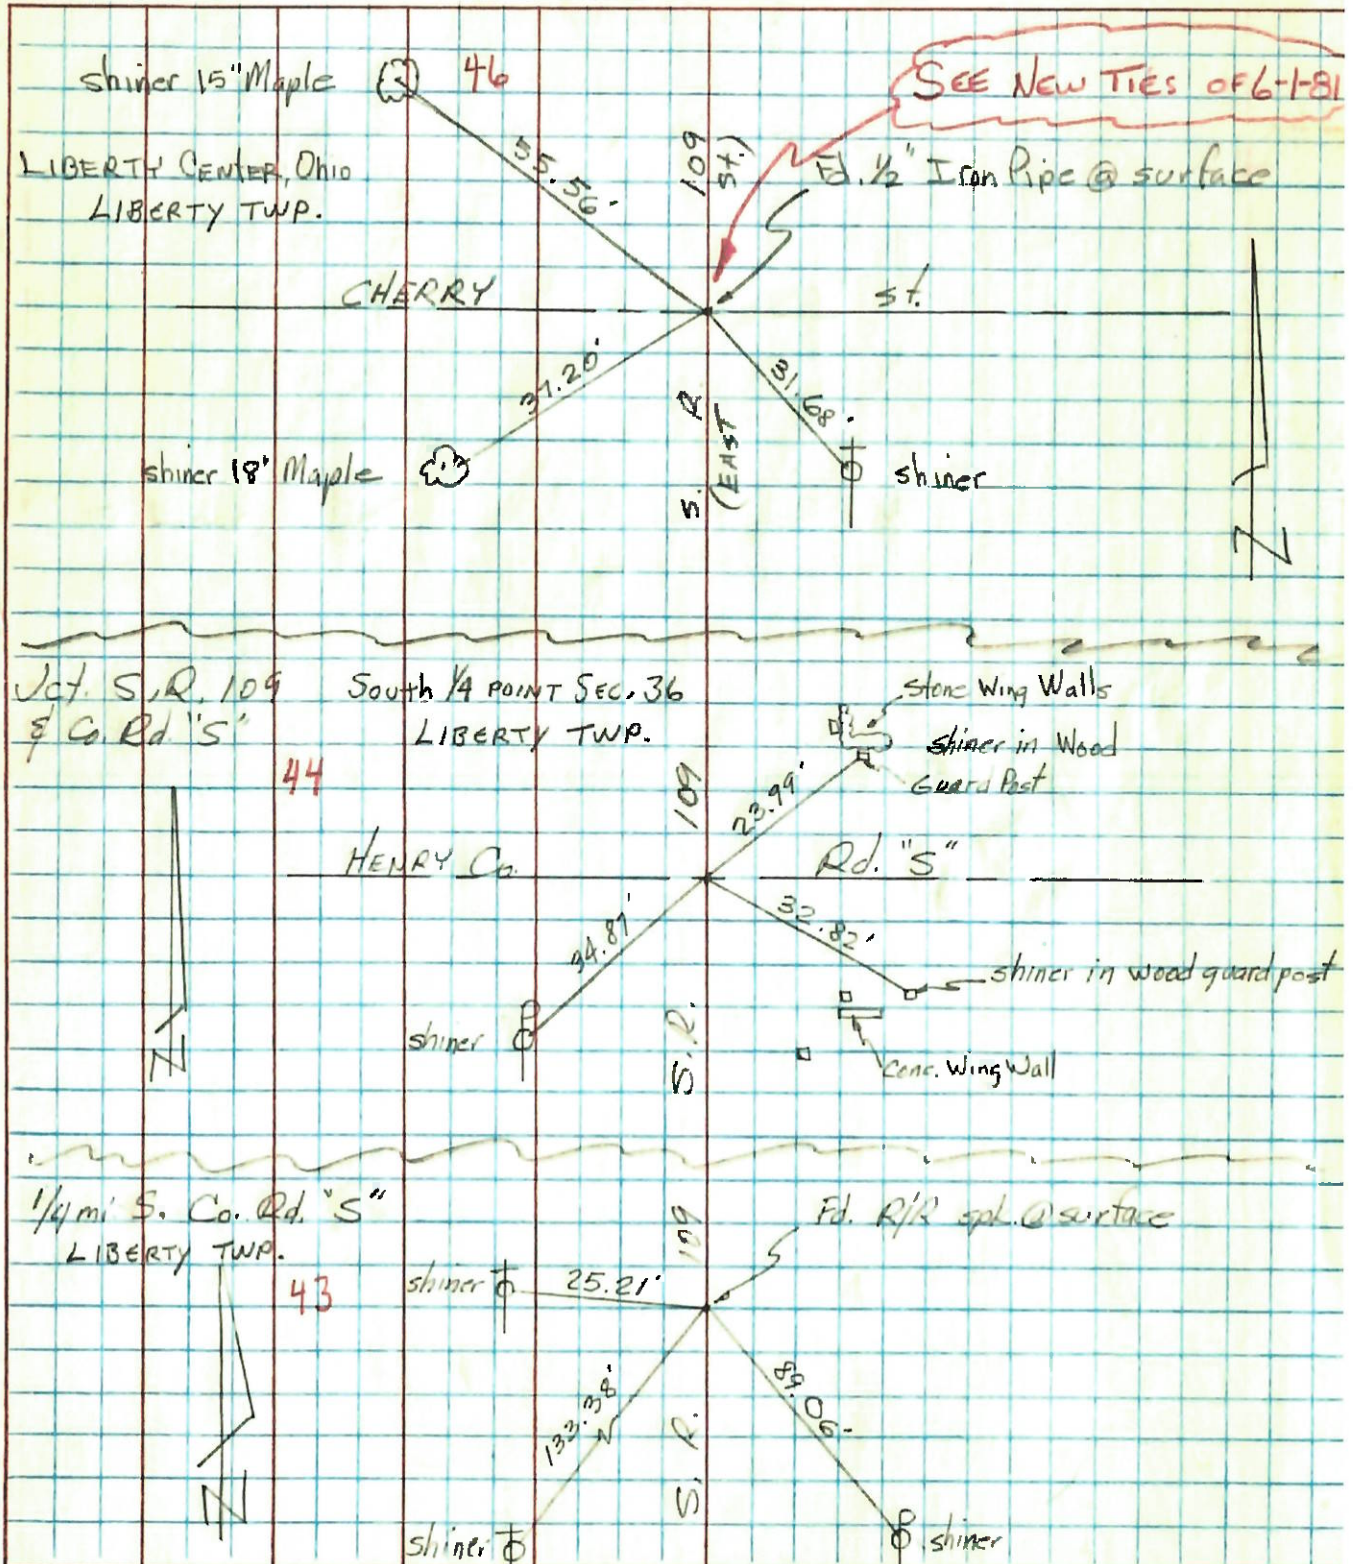 shiner 15" Maple
46
SEE NEW TIES OF 6-1-81
LIBERTY CENTER, Ohio
LIBERTY TWP.
55.56'
109
St.)
Fd. 1/2" Iron Pipe @ surface
CHERRY
st.
37.20'
31.68'
S. R.
(EAST
shiner 18' Maple
shiner
N
Jct. S.R. 109
& Co. Rd. "S"
South 1/4 POINT SEC. 36
LIBERTY TWP.
44
stone Wing Walls
shiner in Wood
Guard Post
109
23.99'
HENRY Co.
Rd. "S"
34.87'
32.82'
shiner in wood guard post
shiner
S.R.
Conc. Wing Wall
N
1/4 mi S. Co. Rd. "S"
LIBERTY TWP.
43
109
Fd. R/R spk. @ surface
shiner
25.21'
133.38'
89.06'
S. R.
N
shiner
shiner